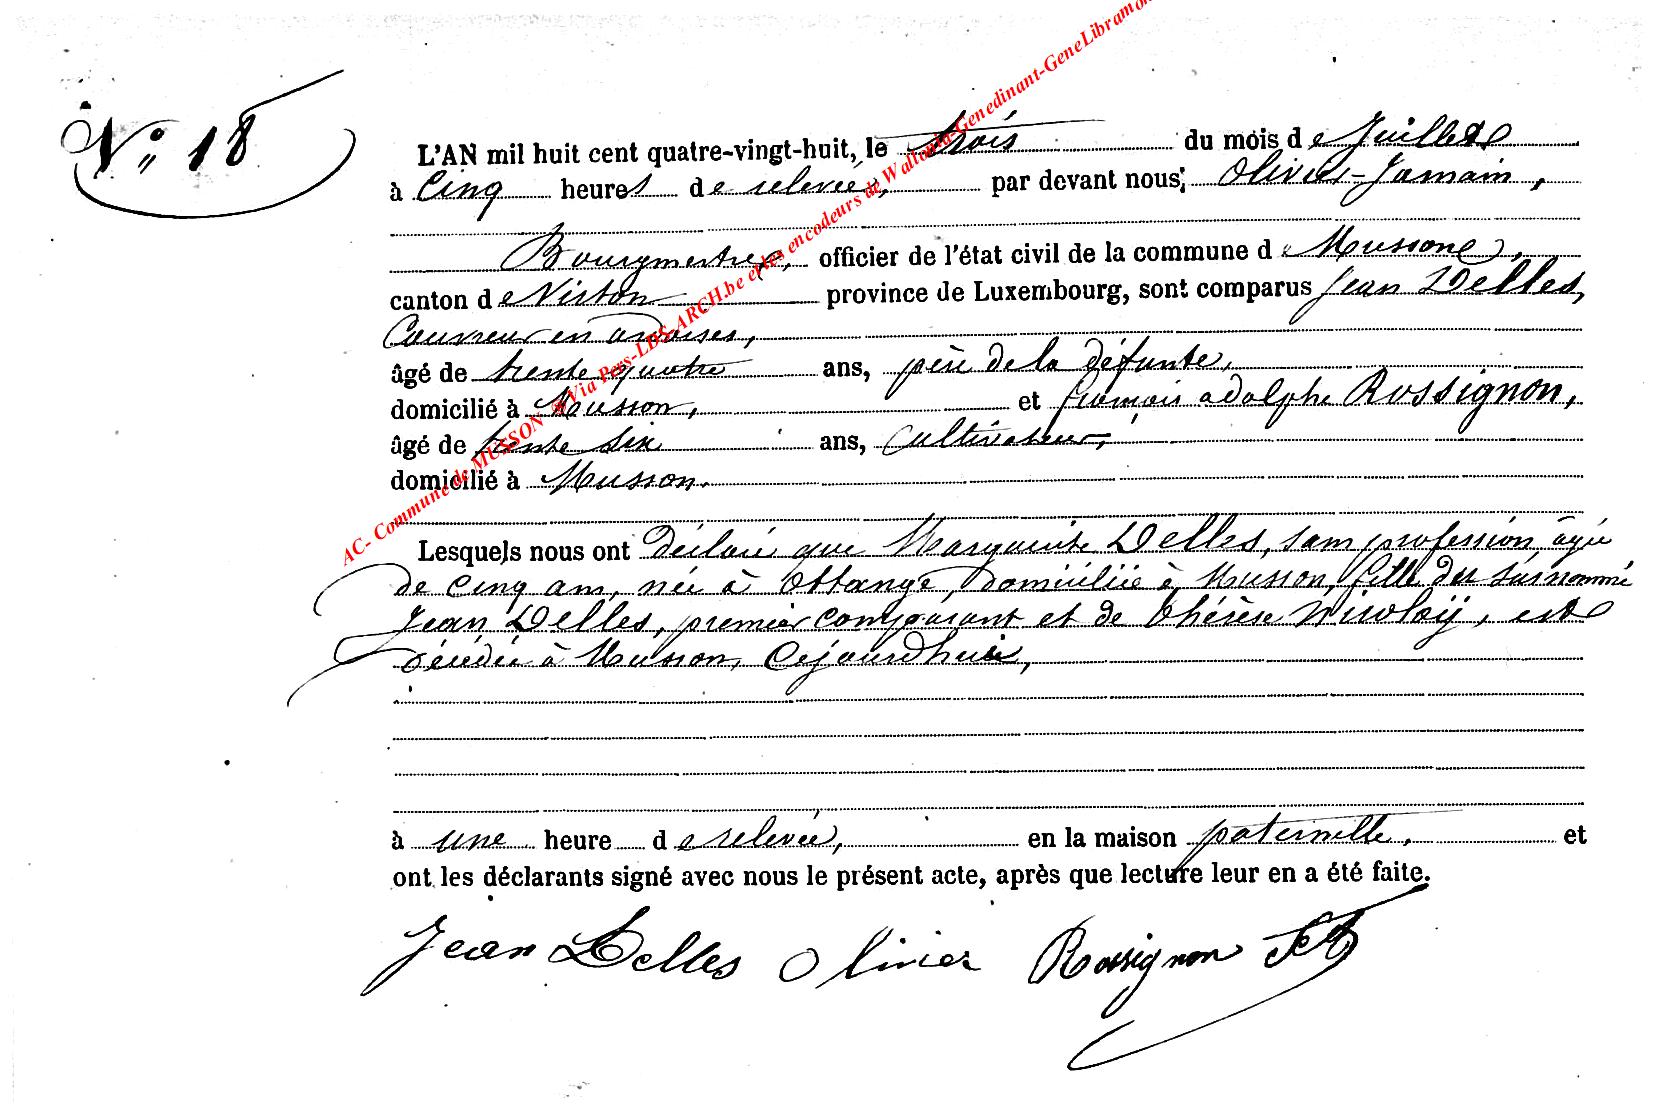 N° 18
L'AN mil huit cent quatre-vingt-huit, le trois du mois de Juillet
à Cinq heures de relevée, par devant nous: Olivier-Jamain,
Bourgmestre, officier de l'état civil de la commune de Musson,
canton de Virton province de Luxembourg, sont comparus Jean Delles,
Couvreur en ardoises,
âgé de trente quatre ans, père de la défunte,
domicilié à Musson, et françois adolphe Rossignon,
âgé de trente six ans, Cultivateur,
domicilié à Musson.
Lesquels nous ont déclaré que Marguerite Delles, sans profession, âgée
de cinq ans, née à Ottange, domiciliée à Musson, fille du surnommé
Jean Delles, premier comparant et de Thérèse Nicolaÿ, est
décédée à Musson, Cejourdhui,
à une heure de relevée, en la maison paternelle, et
ont les déclarants signé avec nous le présent acte, après que lecture leur en a été faite.
Jean Delles Olivier Rossignon
AC- Commune de MUSSON @Via Pers-LDS-ARCH.be et les encodeurs de Wallonia-Genedinant-GeneLibramon